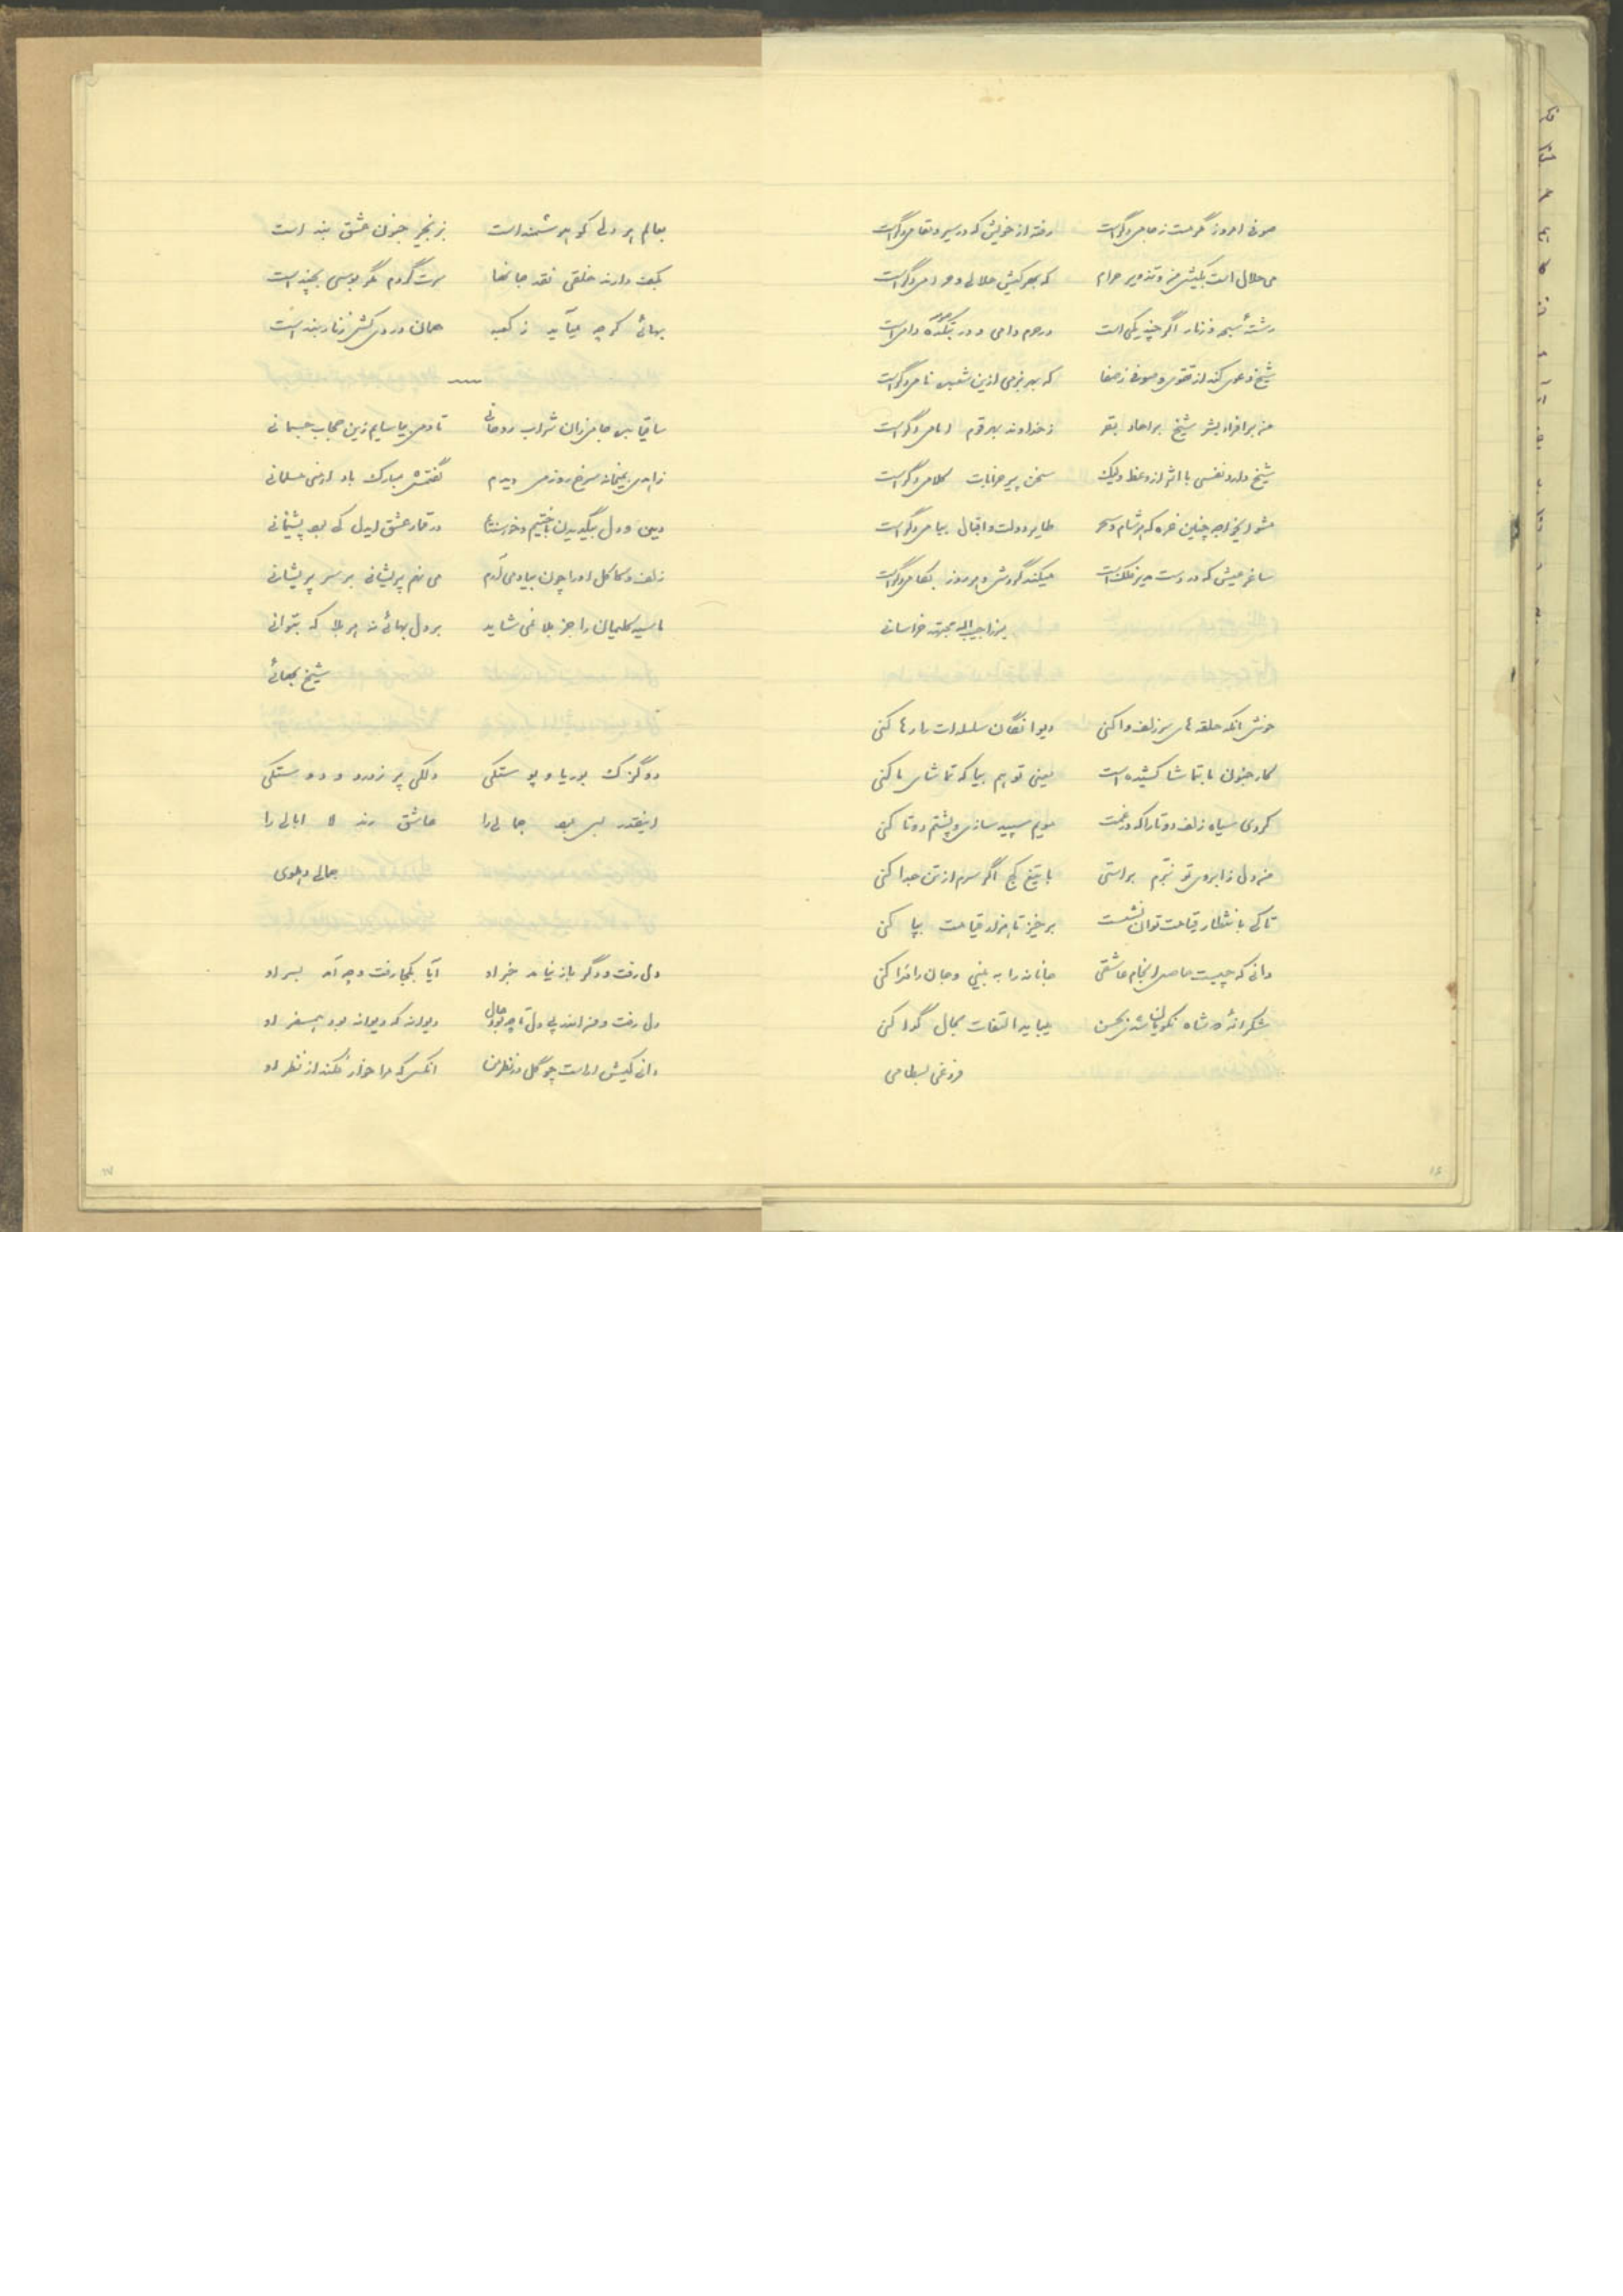 صوفی امروز گر مست ز جامی دگر است رفته از خویش که در سیر و مقامی دگر است
می حلال است بکیش من و تزویر حرام که بهر کیش حلالی و حرامی دگر است
رشتهٔ سبحه و زنار اگر چند یکی است در حرم دامی و در بتکده دامی دگر است
شیخ دعوی کند از تقوی و صوفی ز صفا که بهر بزمی ازین شعبده نامی دگر است
شیخ دارد نفسی با اثر از وعظ ولیک سخن پیر خرابات کلامی دگر است
مشو ایخواجه چنین غره که هر شام و سحر طایر دولت و اقبال ببامی دگر است
میکند گردش و هر روز بکامی دگر است
میرزا حبیب الله مجتهد خراسانی
خوش آنکه حلقه های سر زلف وا کنی دیوانگان سلسله ات را رها کنی
کار جنون ما بتماشا کشیده است یعنی تو هم بیا که تماشای ما کنی
کردی سیاه زلف دوتا را که در غمت مویم سپید سازی و پشتم دوتا کنی
من دل ز ابروی تو نبرم براستی با تیغ کج اگر سرم از تن جدا کنی
تا کی با نتظار قیامت توان نشست برخیز تا هزار قیامت بپا کنی
دانی که چیست حاصل انجام عاشقی جانانه را به بینی و جان را فدا کنی
شکرانهٔ که شاه نکویان شدی بحسن میباید التفات بحال گدا کنی
فروغی بسطامی
۱۶
بعالم هر دلی کو هوشمند است بزنجیر جنون عشق بند است
بکف دارند خلقی نقد جانها سرت گردم مگر بوسی بچند است
بهائی گرچه میآید ز کعبه همان دردی کش زنار بند است
ساقیا بده جامی زان شراب روحانی تا دمی بیاسایم زین حجاب جسمانی
زاهدی بمیخانه سرخ روز می دیدم گفتمش مبارک باد ارمنی مسلمانی
دین و دل بیک دیدن باختیم و خرسندیم در قمار عشق ایدل کی بود پشیمانی
زلف و کاکل او را چون بیاد می آرم می نهم پریشانی بر سر پریشانی
ما سیه گلیمان را جز بلا نمی شاید بر دل بهائی نه هر بلا که بتوانی
شیخ بهائی
دو گزک بوریا و پوستکی دلکی پر ز درد و دوستکی
اینقدر بس بود جمالی را عاشق رند لا ابالی را
جمالی دهلوی
دل رفت و دگر باز نیامد خبر او آیا بکجا رفت و چه آمد بسر او
دل رفت و من اندر پی دل تا چه بود حال دیوانه که دیوانه بود همسفر او
آنکس که مرا خوار فکند از نظر او
۱۷